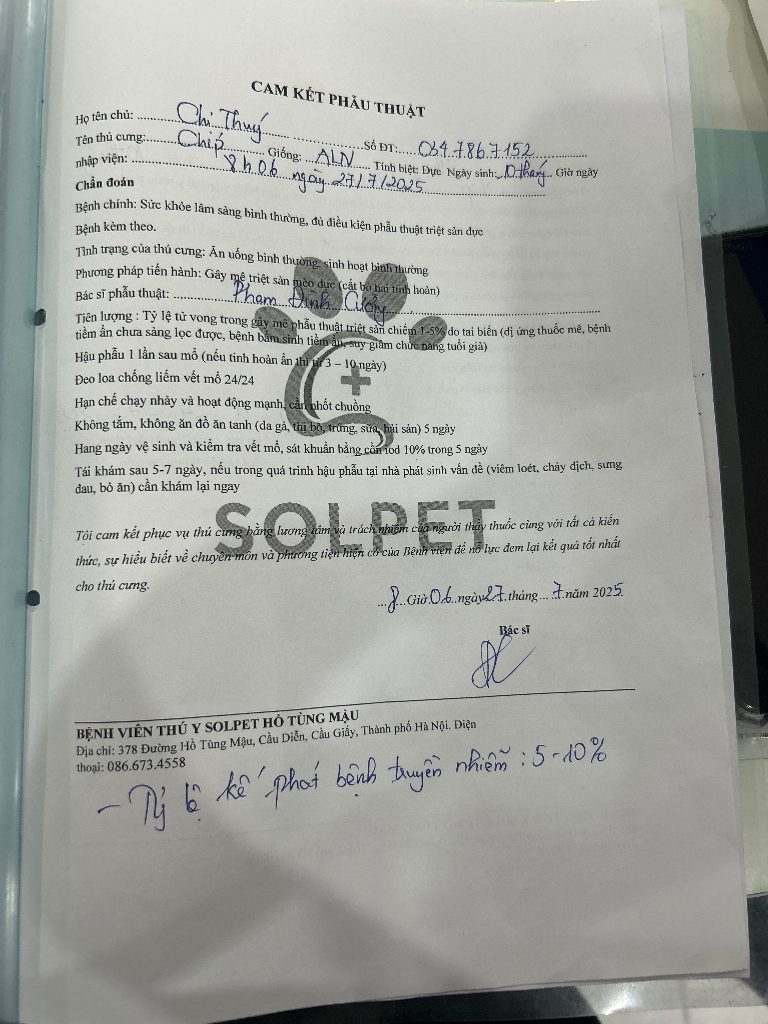 CAM KẾT PHẪU THUẬT
Họ tên chủ: Chị Thuý Số ĐT: 064.7867.152
Tên thú cưng: Chip Giống: ALN Tính biệt: Đực Ngày sinh: 10 tháng Giờ ngày
nhập viện: 8h06 ngày 27/7/2025
Chẩn đoán
Bệnh chính: Sức khỏe lâm sàng bình thường, đủ điều kiện phẫu thuật triệt sản đực
Bệnh kèm theo.
Tình trạng của thú cưng: Ăn uống bình thường, sinh hoạt bình thường
Phương pháp tiến hành: Gây mê triệt sản mèo đực (cắt bỏ hai tinh hoàn)
Bác sĩ phẫu thuật: Phạm Đình Cường
Tiên lượng : Tỷ lệ tử vong trong gây mê phẫu thuật triệt sản chiếm 1-5% do tai biến (dị ứng thuốc mê, bệnh
tiềm ẩn chưa sàng lọc được, bệnh bẩm sinh tiềm ẩn, suy giảm chức năng tuổi già)
Hậu phẫu 1 lần sau mổ (nếu tinh hoàn ẩn thì từ 3 – 10 ngày)
Đeo loa chống liếm vết mổ 24/24
Hạn chế chạy nhảy và hoạt động mạnh, cần nhốt chuồng
Không tắm, không ăn đồ ăn tanh (da gà, thị bò, trứng, sữa, hải sản) 5 ngày
Hang ngày vệ sinh và kiểm tra vết mổ, sát khuẩn bằng cồn iod 10% trong 5 ngày
Tái khám sau 5-7 ngày, nếu trong quá trình hậu phẫu tại nhà phát sinh vấn đề (viêm loét, chảy dịch, sưng
đau, bỏ ăn) cần khám lại ngay
SOLPET
Tôi cam kết phục vụ thú cưng bằng lương tâm và trách nhiệm của người thầy thuốc cùng với tất cả kiến
thức, sự hiểu biết về chuyên môn và phương tiện hiện có của Bệnh viện để nỗ lực đem lại kết quả tốt nhất
cho thú cưng.
8 Giờ 06 ngày 27 tháng 7 năm 2025
Bác sĩ
BỆNH VIÊN THÚ Y SOLPET HỒ TÙNG MẬU
Địa chỉ: 378 Đường Hồ Tùng Mậu, Cầu Diễn, Cầu Giấy, Thành phố Hà Nội. Điện
thoại: 086.673.4558
- Tỷ lệ kế phát bệnh truyền nhiễm : 5-10%